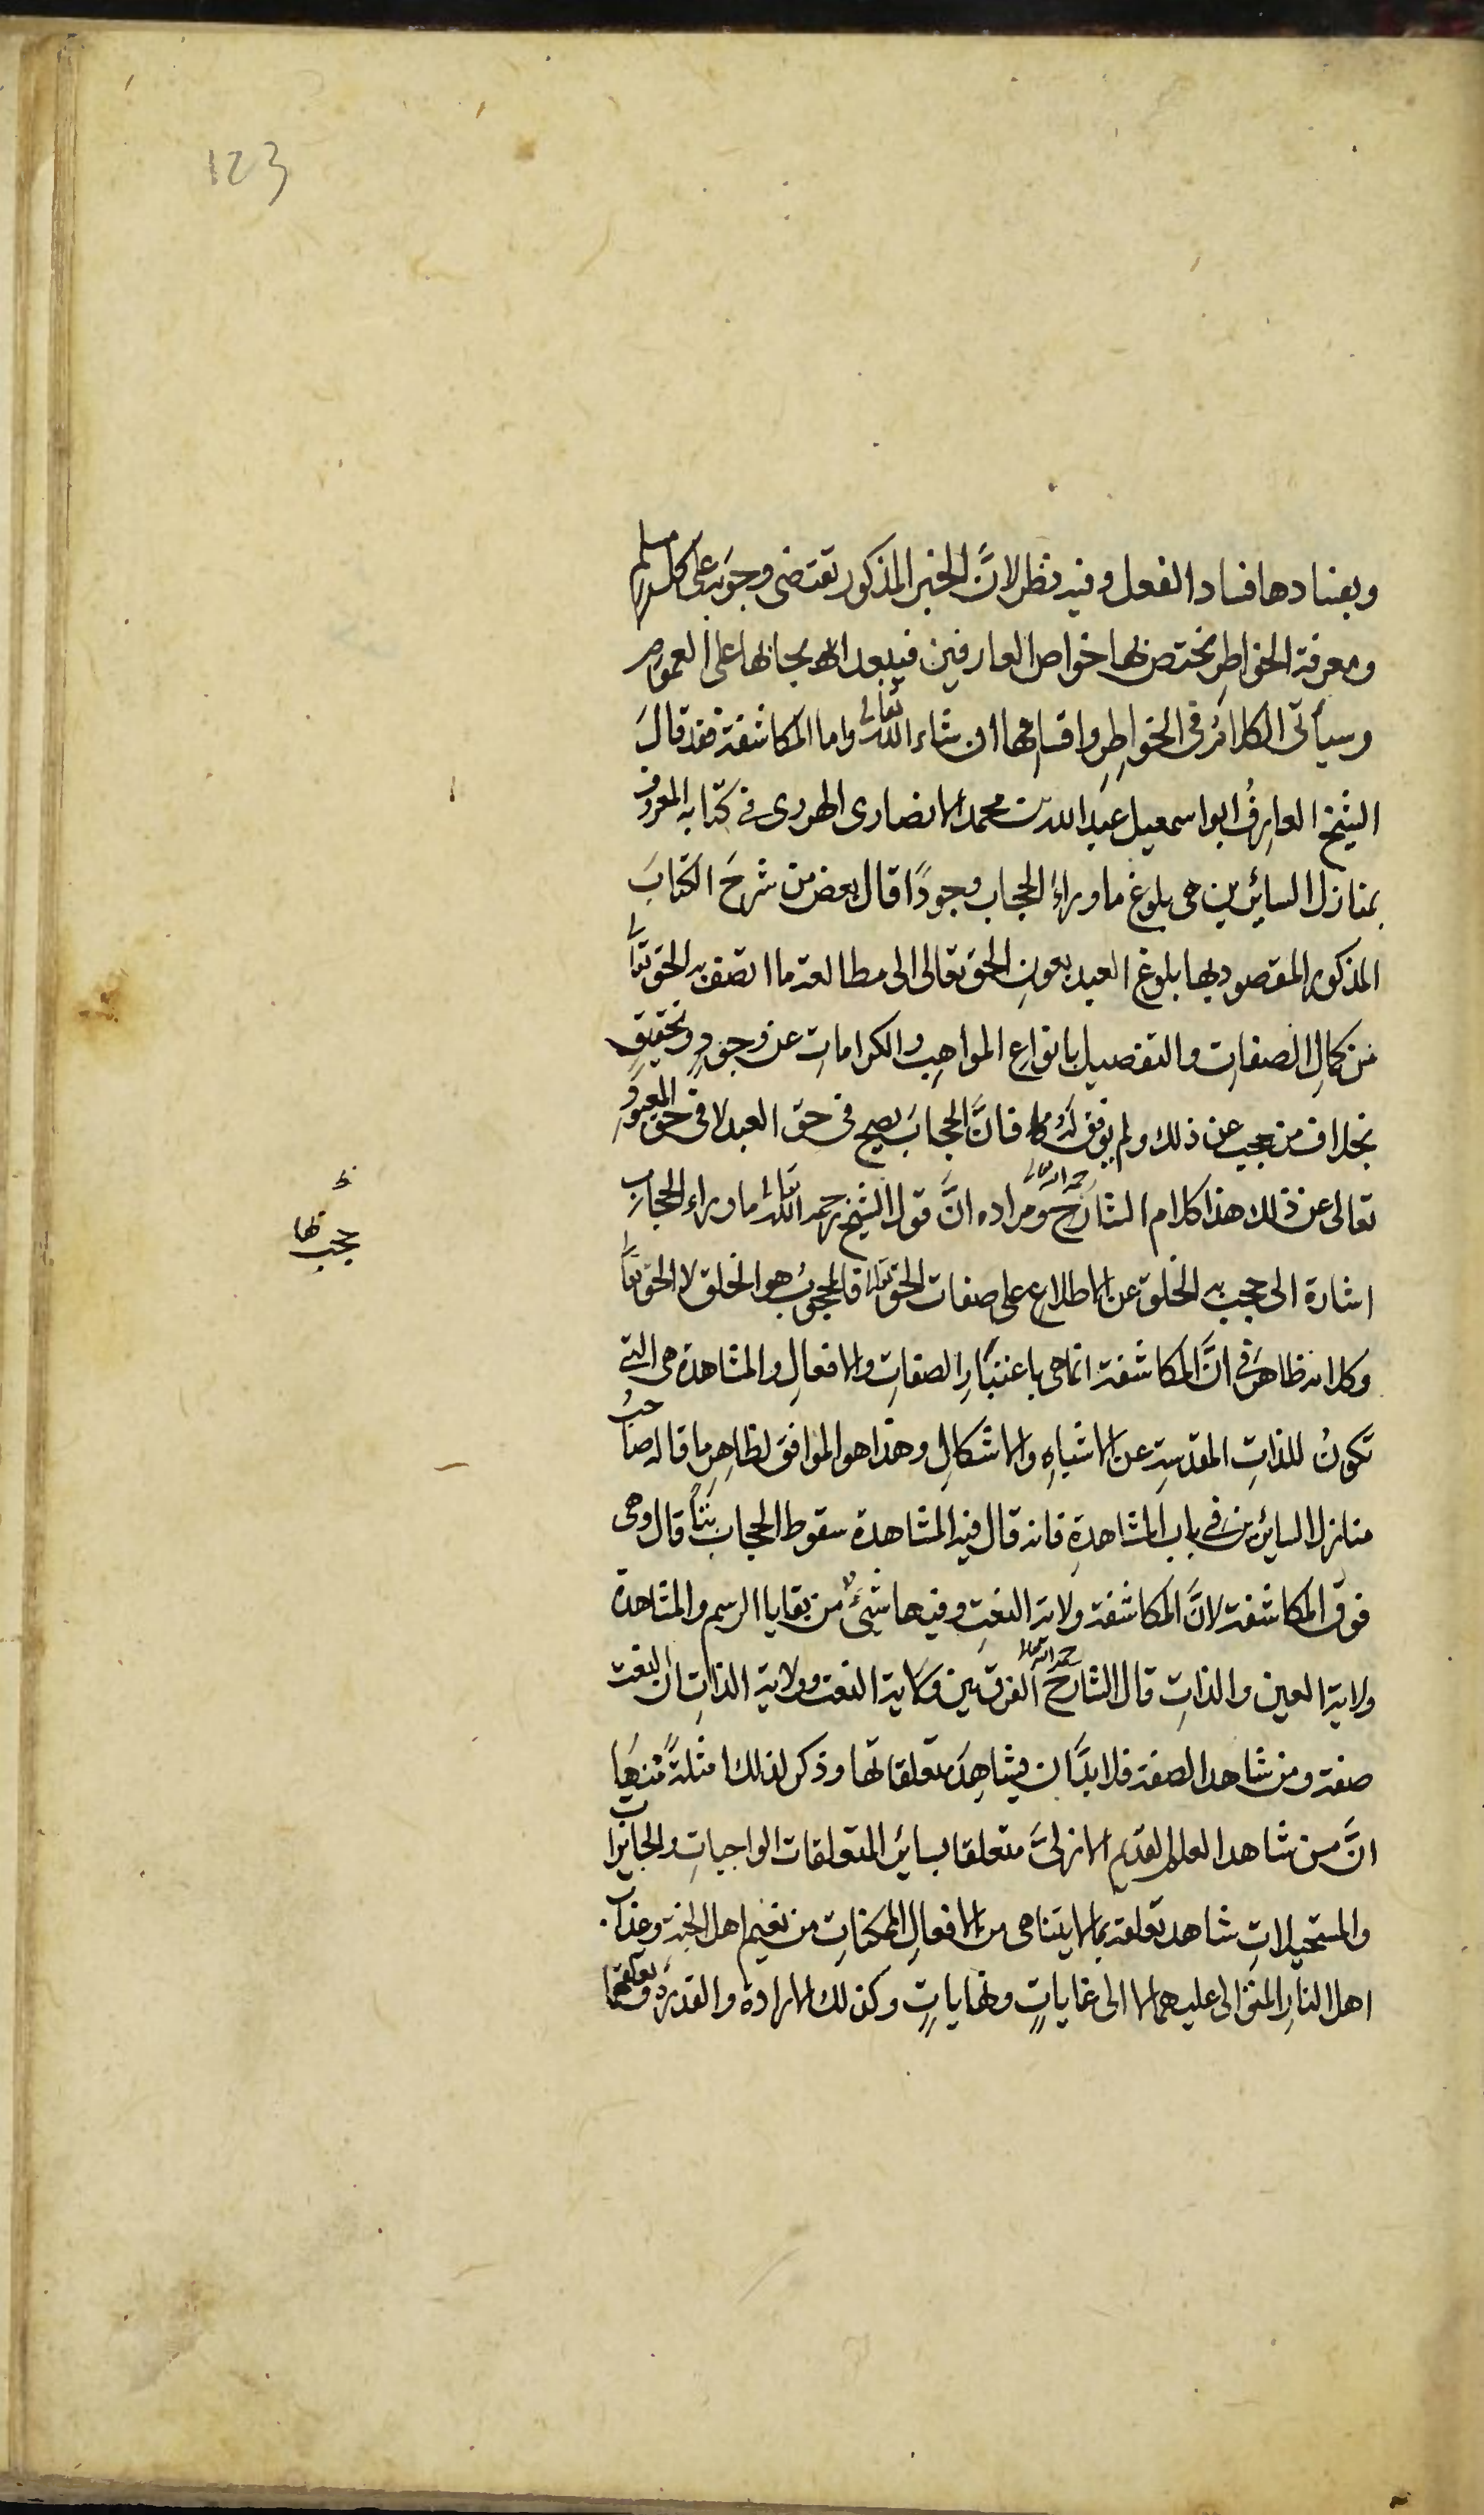 123
وبفسادها فساد الفعل وفيه نظر لانَّ الخبر المذكور تقتضى وجوبه على كل مسلم
ومعرفة الخواطرِ تختص بها خواص العارفين فيبعد ايجابها على العموم
وسيأتى الكلامُ فى الخواطِرِ واقسامها ان شاء الله تعالى واما المكاشفة فقد قالَ
الشيخ العارِفُ ابو اسمعيل عبد الله بن محمد الانصارى الهروى فى كتابه المعروف
بمنازل السائرين هى بلوغ ما وراءَ الحجاب وجودًا قال بعض من شرحَ الكتابَ
المذكور المقصود بها بلوغ العبد بعونِ الحق تعالى الى مطالعة ما اتصف به الحق تعالى
من كمالِ الصفات والتفصيل بانواعِ المواهِب والكرامات عن وجودٍ وتحقيقٍ
بخلاف من حجب عن ذلك ولم يوفق لَهُ فانَّ الحجابَ يصح فى حق العبد لا فى حق المعبود
تعالى عن ذلك هذا كلام الشارح رحمه الله تعالى ومراده انَّ قول الشيخ رحمه الله تعالى ما وراء الحجابِ
حجب بها
اشارة الى حجب به الخلق عن الاطلاع على صفات الحق تعالى فالمحجوبُ هو الخلق لا الحق تعالى
وكلامه ظاهرٌ فى انَّ المكاشفة انما هى باعتبَارِ الصفاتِ والافعالِ والمشاهدة هى التى
تكونُ للذاتِ المقدسةِ عن الاشباهِ والاشكالِ وهذا هو الموافق لظاهِرِ ما قاله صاحبُ
منازل السائرين فى باب المشاهدةِ فانه قال فيه المشاهدة سقوط الحجاب بتًّا قال وهى
فوق المكاشفة لانَّ المكاشفة ولاية النعتِ وفيها شئٌ من بقايا الرسم والمشاهدة
ولاية العين والذاتِ قال الشارح رحمه الله تعالى الفرق بين ولاية النعت وولاية الذاتِ ان النعت
صفة ومن شاهد الصفة فلا بدَّ ان يشاهِدَ متعلقاتها وذكر لذلك امثلةً مِنهَا
انَّ من شاهد العلم القديم الازلىَّ متعلقا بسائر المتعلقات الواجبات والجايزات
والمستحيلاتِ شاهد تعلقه بما لا يتناهى من الافعالِ الممكنات من نعيم اهل الجنة وعذاب
اهل النار المتوالى عليهما لا الى غاياتٍ ونهاياتٍ وكذلك الارادة والقدرة وتعلقهما